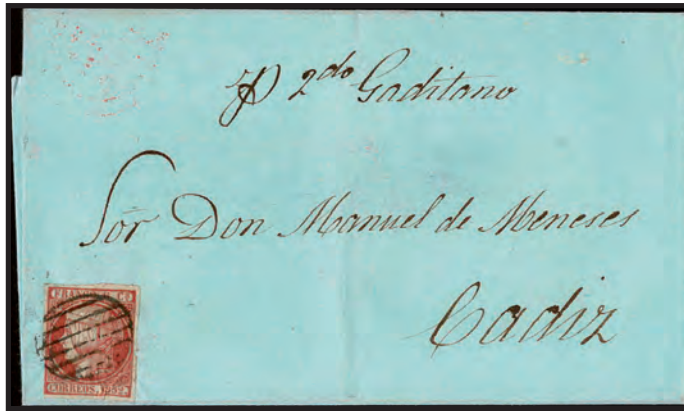 P 2do Gaditano
Sor Don Manuel de Meneses
Cadiz
FRANCO. 6. Cs
CORREOS. 1852